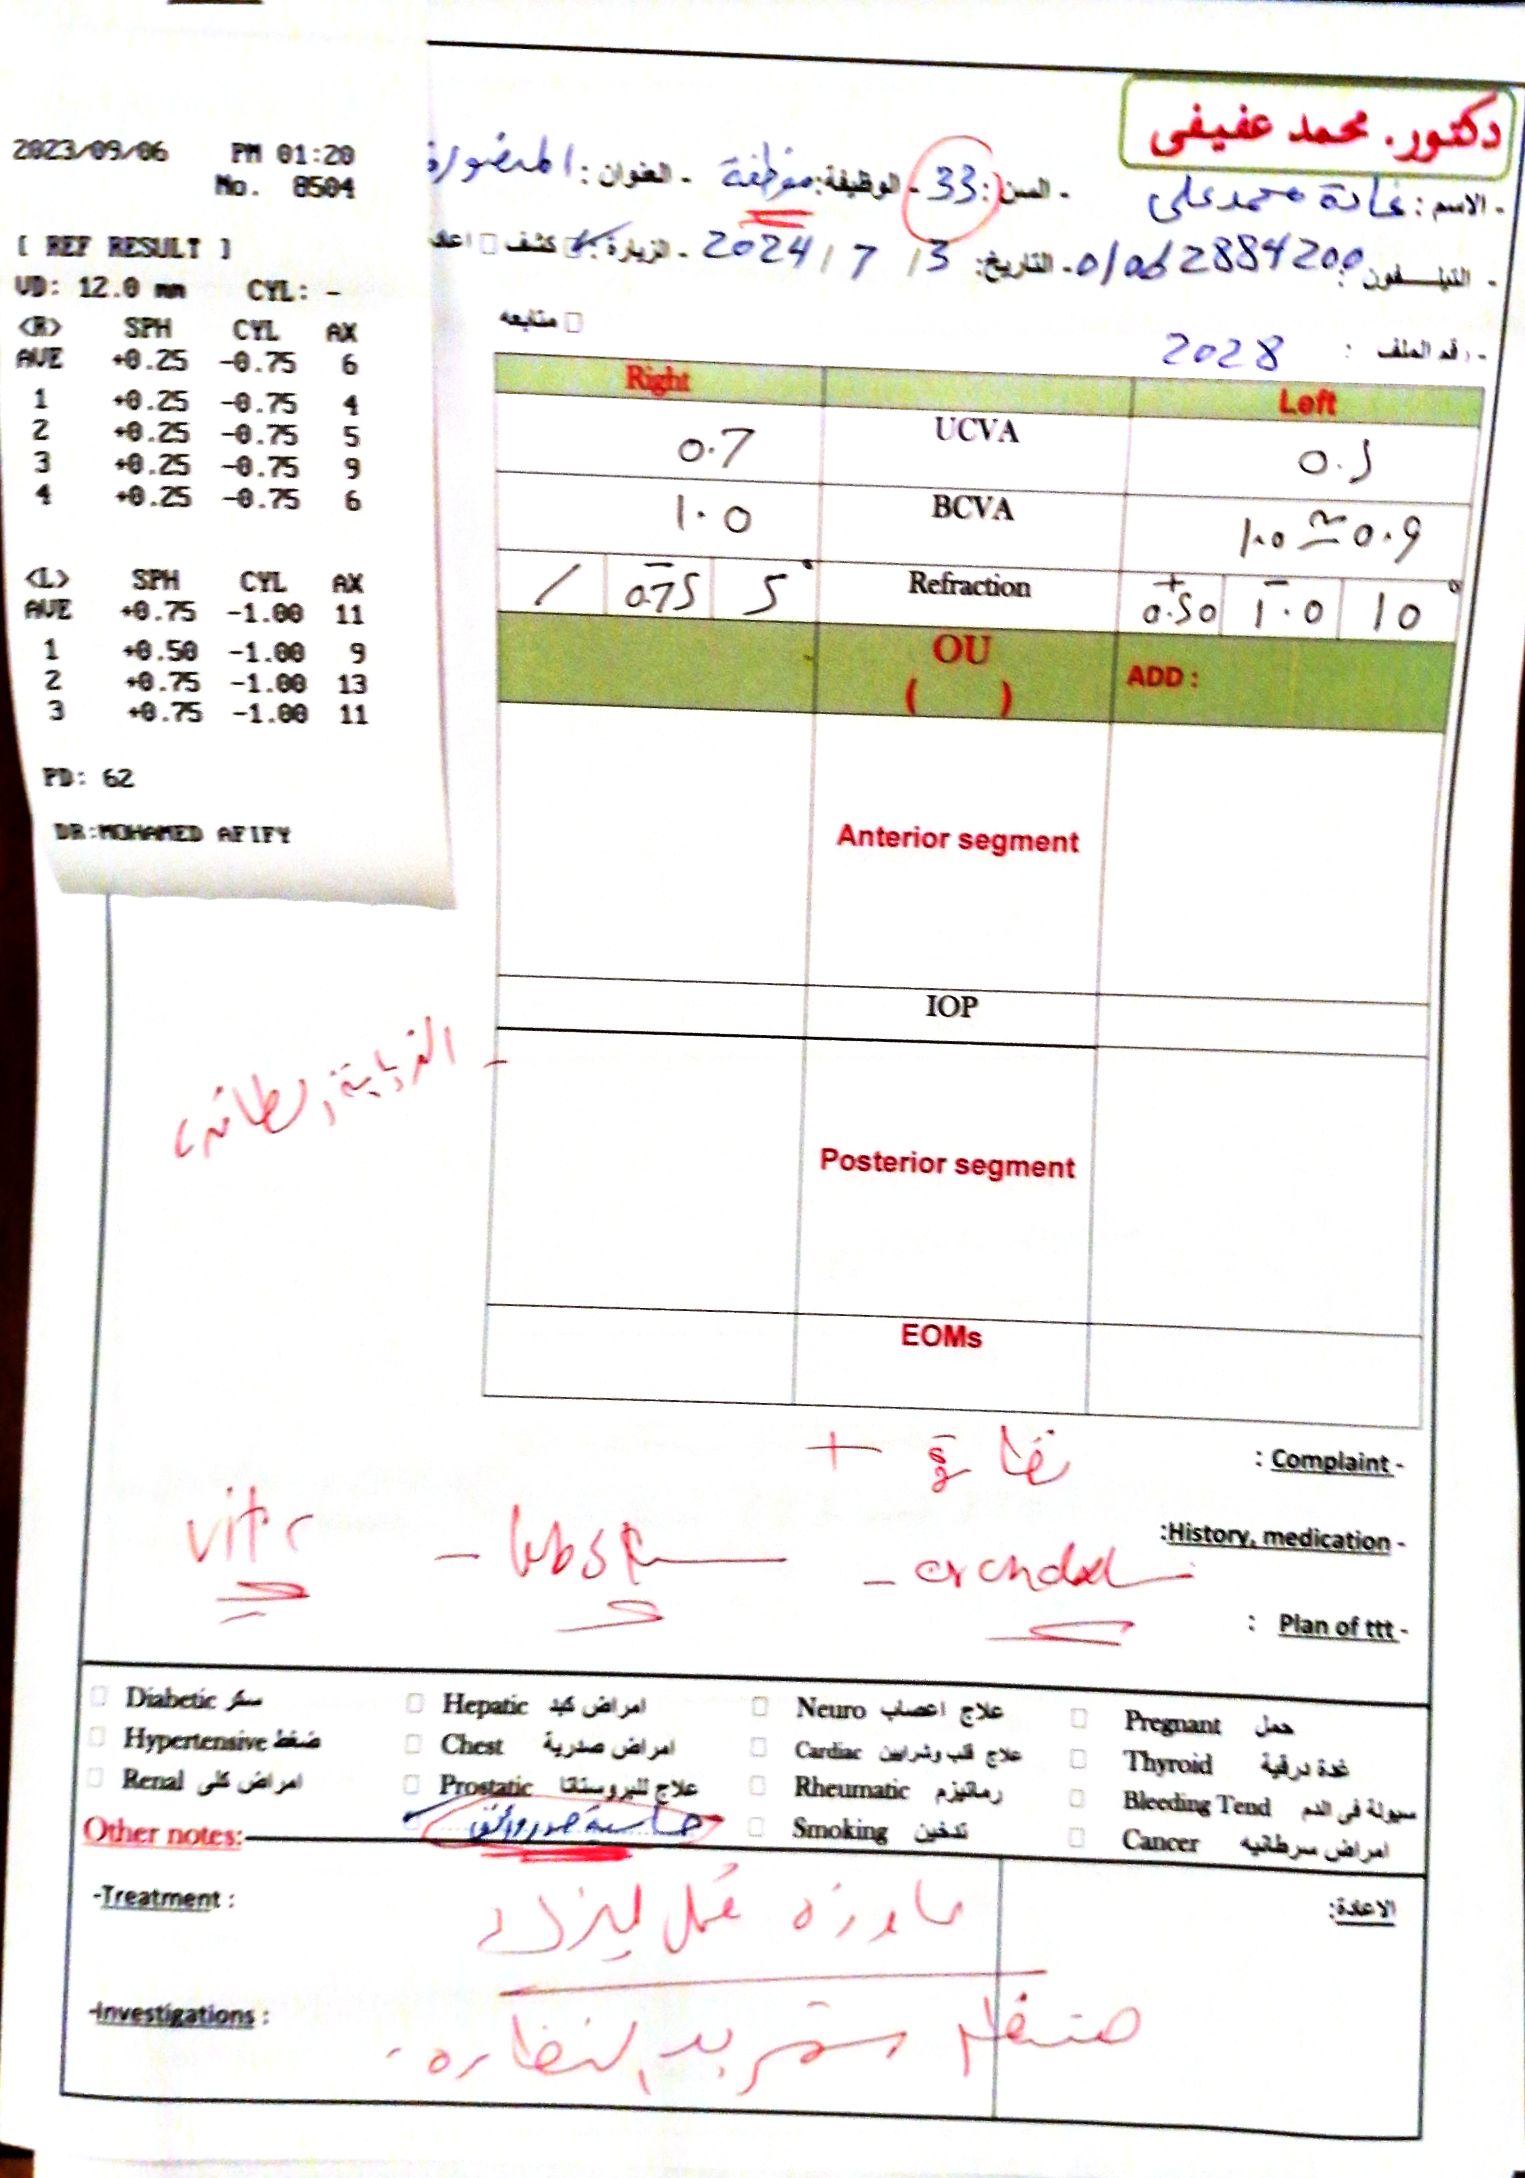 2023/09/06 PM 01:20
No. 8504
[ REF RESULT ]
VD: 12.0 mm CYL: -
<R> SPH CYL AX
AVE +0.25 -0.75 6
1 +0.25 -0.75 4
2 +0.25 -0.75 5
3 +0.25 -0.75 9
4 +0.25 -0.75 6
<L> SPH CYL AX
AVE +0.75 -1.00 11
1 +0.50 -1.00 9
2 +0.75 -1.00 13
3 +0.75 -1.00 11
PD: 62
DR:MOHAMED AFIFY
دكتور. محمد عفيفى
- الاسم : غادة محمد على - السن : 33 - الوظيفة: موظفة - العنوان : المنصورة
- التيلـــفون : - التاريخ: 3 / 7 / 2024 - الزيارة : كشف
متابعه
- رقم الملف : 2028
Right Left
0.7 UCVA 0.5
1.0 BCVA 1.0 ≃ 0.9
/ -0.75 5° Refraction +0.50 -1.0 10°
OU
( ) ADD :
Anterior segment
IOP
- الذبابة الطائرة
Posterior segment
EOMs
: Complaint -
:History, medication -
vit c
: Plan of ttt -
Diabetic سكر Hepatic امراض كبد Neuro علاج اعصاب Pregnant حمل
Hypertensive ضغط Chest امراض صدرية Cardiac علاج قلب وشرايين Thyroid غدة درقية
Renal امراض كلى Prostatic علاج للبروستاتا Rheumatic رماتيزم Bleeding Tend سيولة فى الدم
Other notes: حساسية صدر Smoking تدخين Cancer امراض سرطانيه
-Treatment : الاعادة:
عاوزه تعمل ليزك
-Investigations :
النظاره